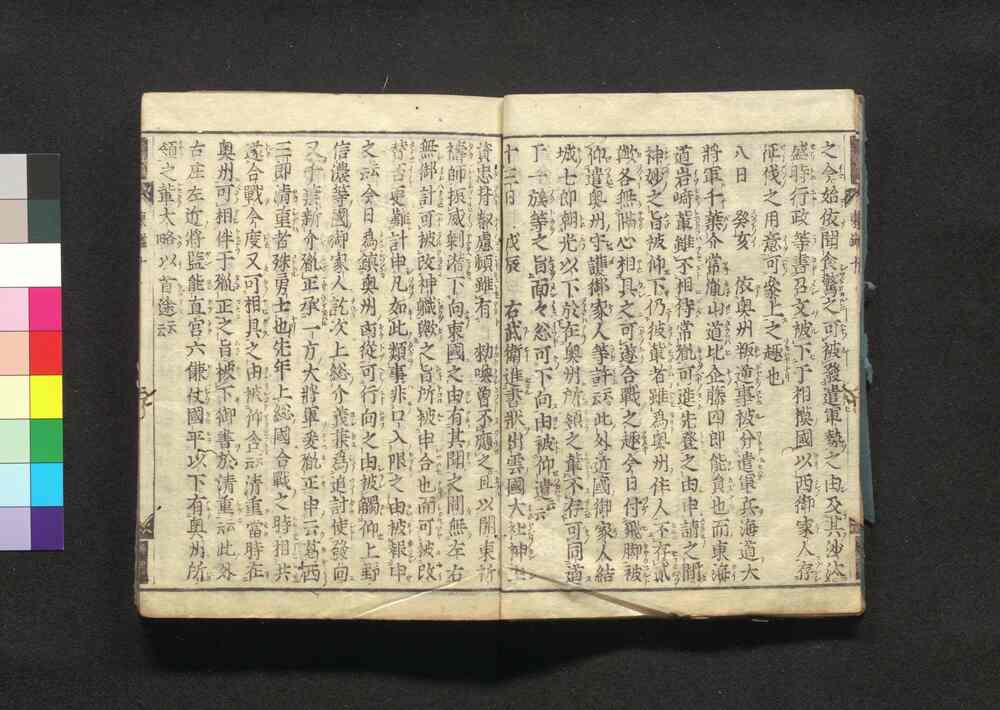 之今始依聞食驚之可被發遣軍勢之由及其沙汰
盛時行政等書召文被下于相模國以西御家人存
征伐之用意可參上之趣也
八日　癸亥　依奥州叛逆事被分遣軍兵海道大
將軍千葉介常胤山道比企藤四郎能員也而東海
道岩﨑輩雖不相待常胤可進先登之由申請之間
神妙之旨被仰下仍彼輩者雖爲奥州住人不存貳
歟各無隔心相具之可遂合戰之趣今日付飛脚被
仰遣奥州守護御家人等許云此外近國御家人結
城七郎朝光以下於在奥州所領之輩不存可同道
于一族等之旨面々急可下向由被仰遣云
十三日　戊辰　右武衛進書狀出雲國大社神主
資忠背叡慮頻雖有　勅喚曾不應之且以關東祈
禱師振威剩潜下向東國之由有其聞之間無左右
無御計可被改神職歟之旨所被申合也而可被改
替否更難計申凡如此類事非口入限之由被報申
之云今日爲鎮奥州南從可行向之由被觸仰上野
信濃等國御家人訖次上総介義兼爲追討使發向
又千葉新介胤正承一方大將軍爰胤正申云葛西
三郎清重者殊勇士也先年上総國合戰之時相共
遂合戰今度又可相具之由被仰含云清重當時在
奥州可相伴于胤正之旨被下御書於清重云此外
古庄左近將監能直宮六傔仗國平以下有奥州所
領之輩大略以首途云